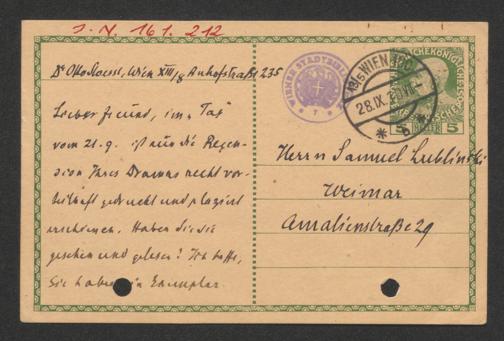 J. N. 161.212
Dr Otto Stoessl, Wien XIII/8 Auhofstraße 235
Lieber Freund, im „Tag"
vom 21.9. ist nun die Rezen-
sion Ihres Dramas recht vor-
teilhaft gedruckt und plaziert
erschienen. Haben Sie sie
gesehen und gelesen? Ich hoffe,
Sie haben ein Exemplar
Herrn Samuel Lublinski
Weimar
Amalienstraße 29
WIENER STADTBIBL
WIEN
28.IX.
5 HELLER 5